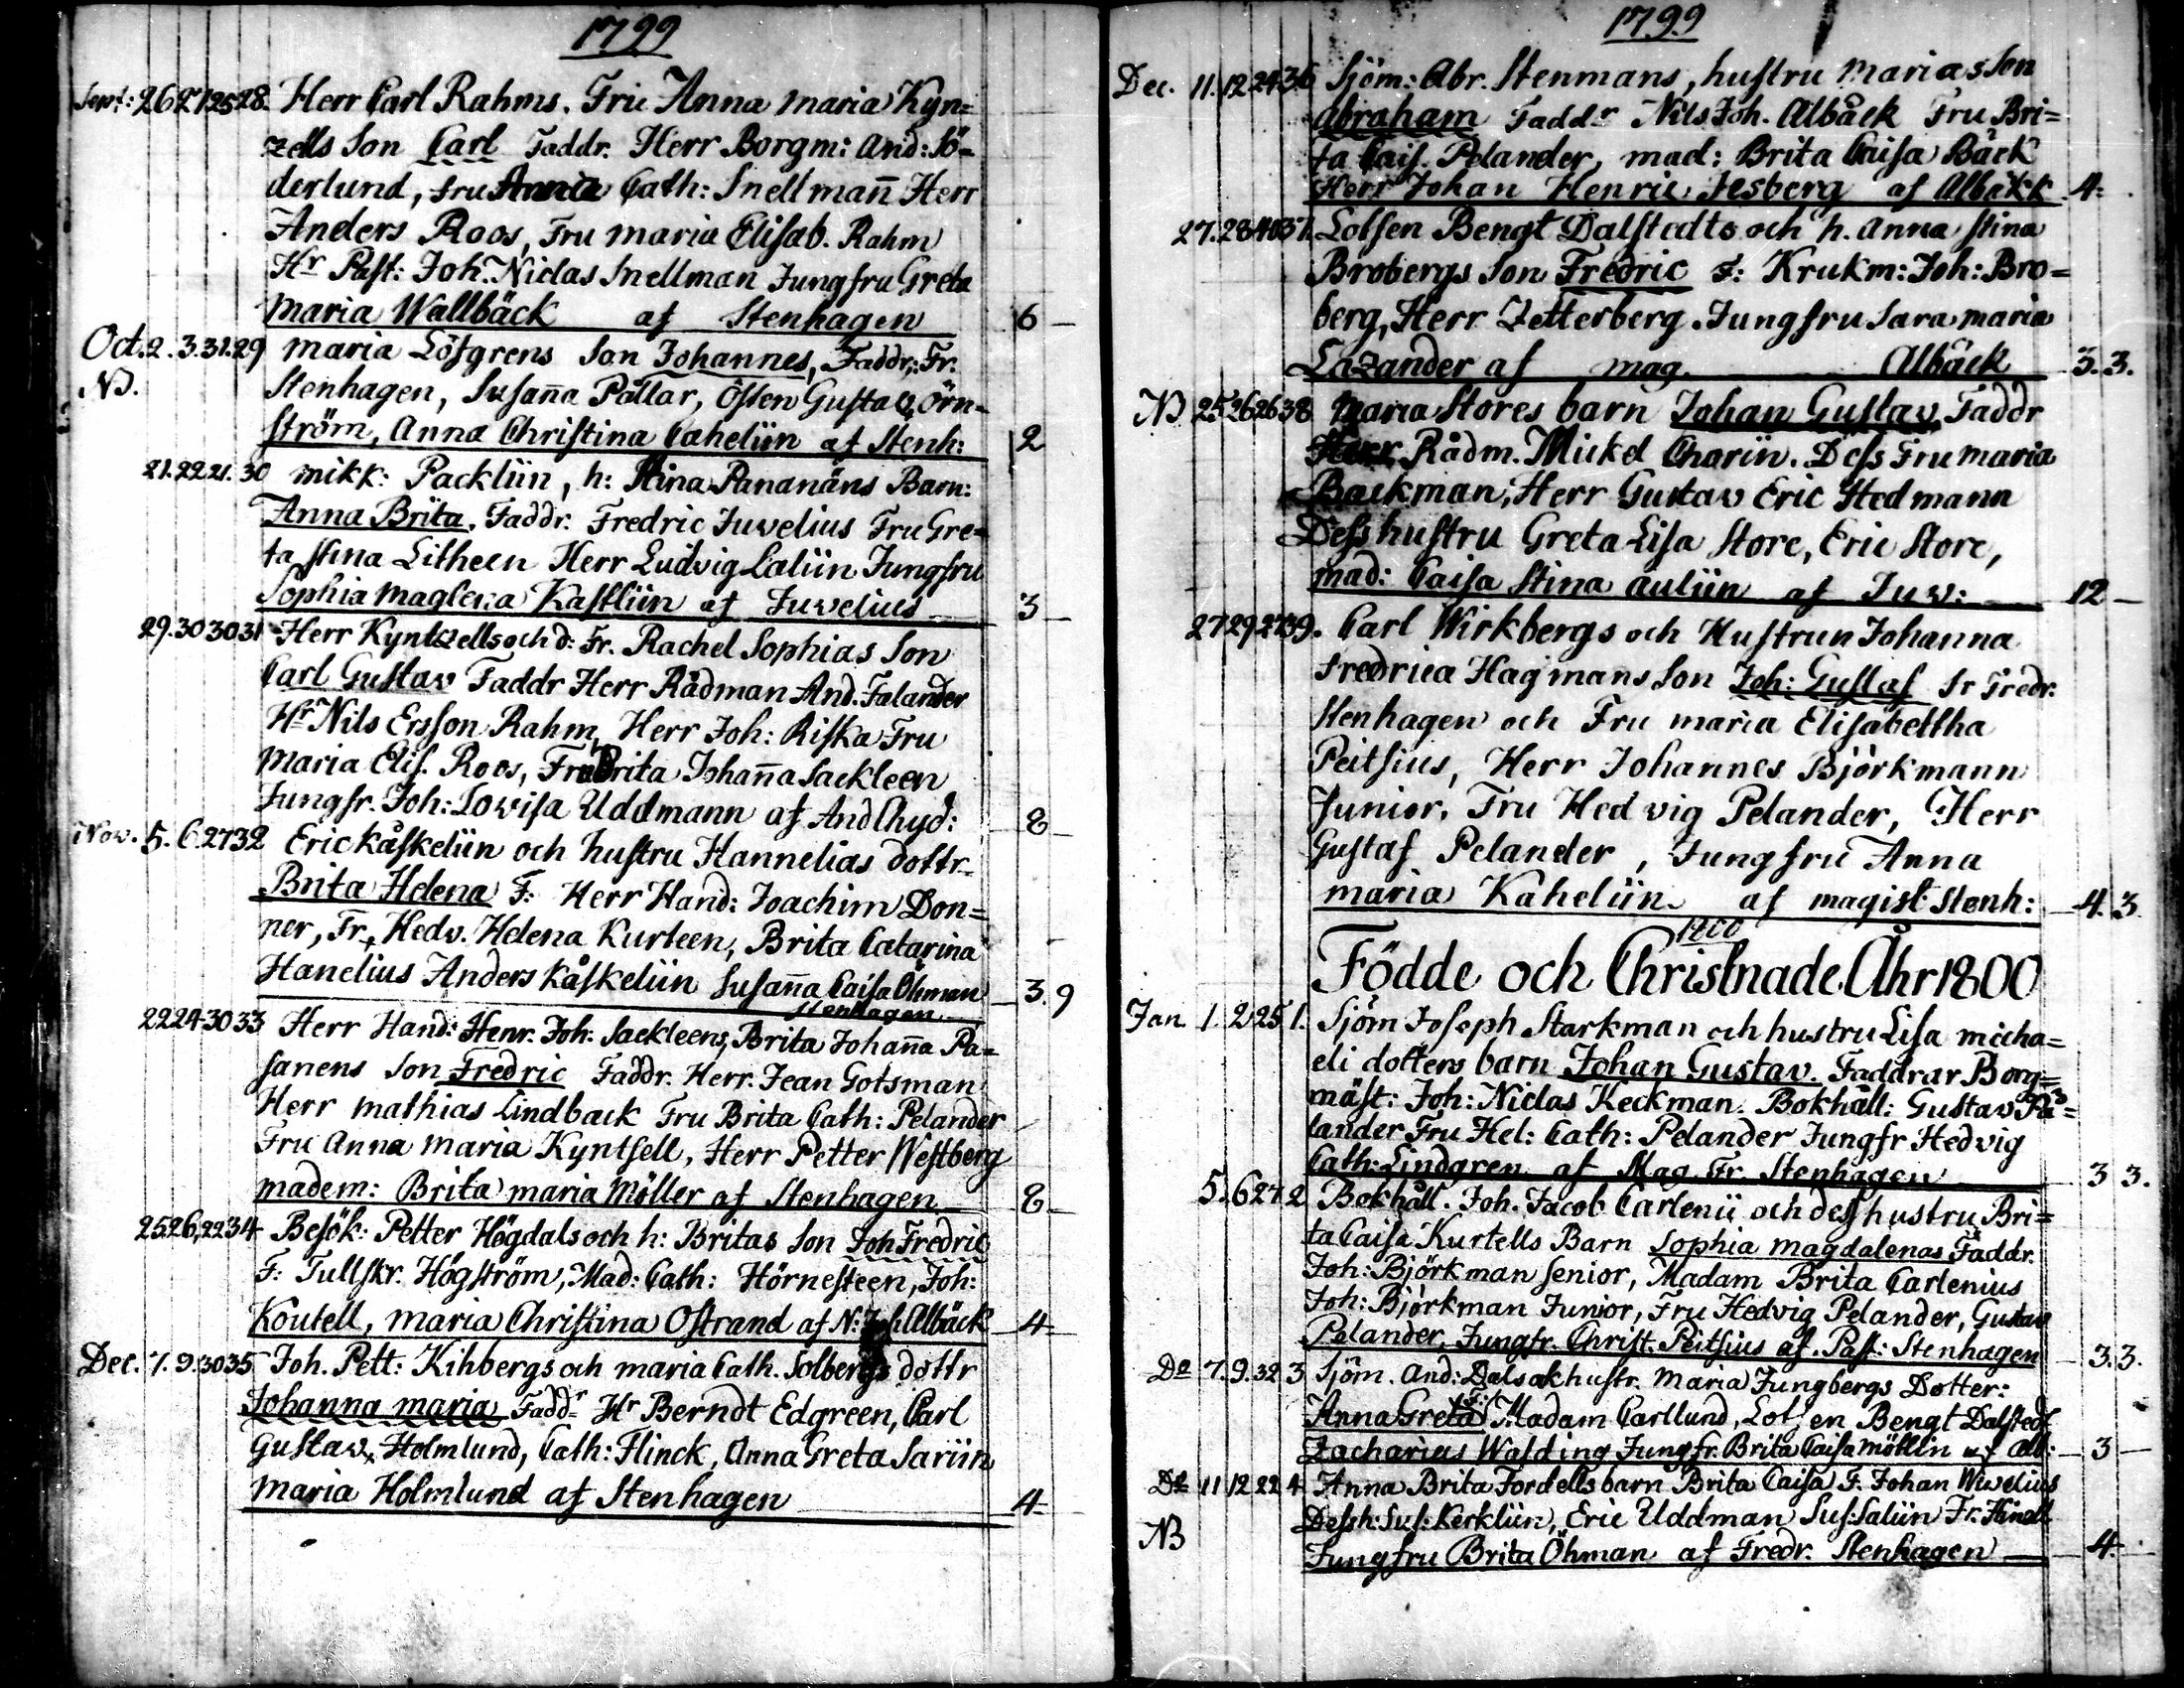 1799
Sept: 26 27 25 28. Herr Carl Rahms. Fru Anna Maria Kyn=
zells Son Carl Faddr. Herr Borgm: And: Sö=
derlund, fru Anna Cath: Snellman̄ Herr
Anders Roos, Fru Maria Elisab. Rahm
Hr Past: Joh. Niclas Snellman Jungfru Greta
Maria Wallbäck af Stenhagen 6 —
Oct. 2. 3. 31. 29 Maria Löfgrens Son Johannes, Faddr: Fr.
NB. Stenhagen, Susan̄a Pallar, Östen Gustav Örn=
ström, Anna Christina Caheliin af Stenh: 2
21. 22 21. 30 Mikk: Packliin, h: Stina Pananäns Barn:
Anna Brita. Faddr. Fredric Juvelius Fru Gre=
ta Stina Litheen Herr Ludvig Laliin Jungfru
Sophia Maglena Kastliin af Juvelius 3 —
29. 30 30 31 Herr Kyntzells och d: Fr. Rachel Sophias Son
Carl Gustav Faddr Herr Rådman And. Falander
Hr Nils Ersson Rahm, Herr Joh: Riska Fru
Maria Elis. Roos, Fru Brita Johan̄a Sackleen
Jungfr. Joh: Lovisa Uddmann af And Chyd: 8 —
Nov. 5. 6. 27 32 Eric Kåskeliin och hustru Hannelias dottr
Brita Helena F: Herr Hand: Joachim Don=
ner, Fr. Hedv. Helena Kurteen, Brita Catarina
Hanelius Anders Kåskeliin Susan̄a Caisa Öhman 3. 9
Stenhagen
22 24 30 33 Herr Hand: Henr. Joh: Sackleens, Brita Johan̄a Pa=
sanens Son Fredric Faddr. Herr. Jean Gotsman
Herr Mathias Lindback Fru Brita Cath: Pelander
Fru Anna Maria Kyntsell, Herr Petter Westberg
madem: Brita Maria Möller af Stenhagen 8
25 26, 22 34 Besök: Petter Högdals och h: Britas Son Joh Fredric
F: Tullskr. Högström, Mad: Cath: Hörnesteen, Joh:
Koutell, Maria Christina Ostrand af N: Joh. Albäck 4 —
Dec. 7. 9. 30 35 Joh. Pett: Kihbergs och Maria Cath. Solbergs dottr
Johanna Maria Faddr Hr Berndt Edgreen, Carl
Gustav Holmlund, Cath: Flinck, Anna Greta Sariin
Maria Holmlund af Stenhagen 4 —
1799
Dec. 11. 12 24 36 Sjöm: Abr. Stenmans, hustru Marias Son
Abraham Faddr Nils Joh. Albäck Fru Bri=
ta Cais. Pelander, mad: Brita Caisa Bäck
Herr Johan Henric Jesberg af Albäck 4
27. 28 40 37. Lotsen Bengt Dalstedts och h. Anna Stina
Brobergs Son Fredric F: Krukm: Joh: Bro=
berg, Herr Zetterberg. Jungfru Sara Maria
Lazander af mag. Albäck 3. 3.
NB 25 26 26 38 Maria Stores barn Johan Gustav Faddr
Herr Rådm. Mickel Chariin. Dess Fru Maria
Backman, Herr Gustav Eric Stedmann
Dess hustru Greta Lisa Store, Eric Store,
mad: Caisa Stina Auliin af Juv: 12 —
27 29 27 39. Carl Wirkbergs och Hustrun Johanna
Fredrica Hagmans Son Joh: Gustaf Fr Fredr.
Stenhagen och Fru Maria Elisabettha
Peitsius, Herr Johannes Björkmann
Junior. Fru Hedvig Pelander, Herr
Gustaf Pelander, Jungfru Anna
Maria Kaheliin af magist: Stenh: 4. 3
1800
Födde och Christnade Åhr 1800
Jan. 1. 2 25 1. Sjöm Joseph Starkman och hustru Lisa Micha=
eli dotters barn Johan Gustav. Faddrar Borg=
mäst: Joh: Niclas Keckman. Bokhåll: Gustav Pe=
lander Fru Hel: Cath: Pelander Jungfr Hedvig
Cath: Lindgren af Mag. Fr. Stenhagen 3 3.
5. 6 27. 2 Bokhåll. Joh. Jacob Carlenii och dess hustru Bri=
ta Caisa Kurtells Barn Sophia Magdalenas Faddr.
Joh: Björkman Senior, Madam Brita Carlenius
Joh: Björkman Junior, Fru Hedvig Pelander, Gustav
Pelander, Jungfr. Christ. Peitsius af. Past: Stenhagen 3. 3.
Do 7. 9. 32 3 Sjöm. And: Dalsak hustr. Maria Jungbergs Dotter:
Anna Greta F: Madam Carllund, Lotsen Bengt Dalstedt
Zacharias Walding Jungfr. Brita Caisa Möllin af Alb: 3 —
Do 11 12 22 4 Anna Brita Fordells barn Brita Caisa F. Johan Wivelius
Dess h: Sus: Kerkliin, Eric Uddman Sus: Saliin Fr. Hinell
NB Jungfru Brita Öhman af Fredr. Stenhagen 4